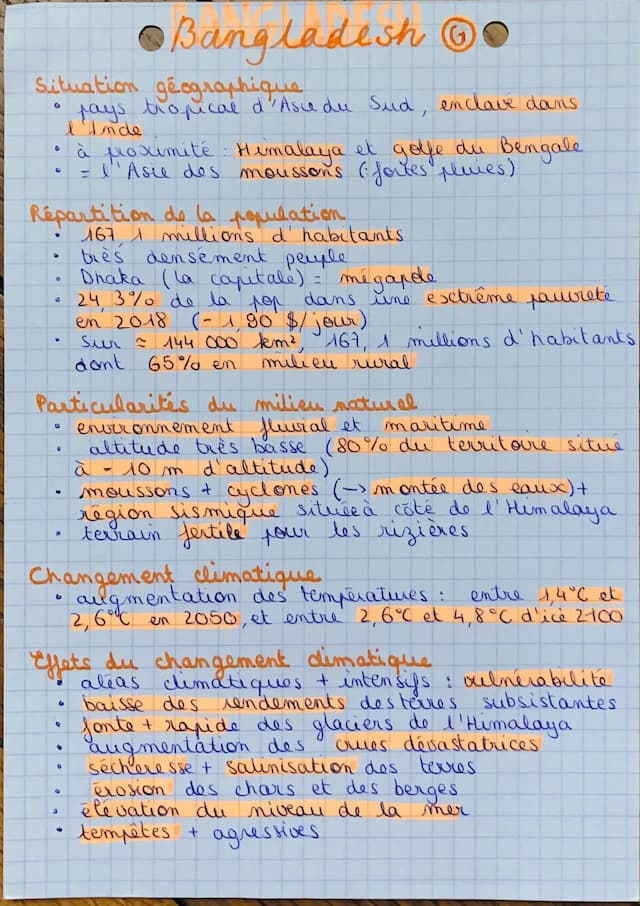 BANGLADESH
Bangladesh G
Situation géographique
• pays tropical d'Asie du Sud, enclavé dans
l'Inde
• à proximité : Himalaya et golfe du Bengale
• = l'Asie des moussons (: fortes pluies)
Répartition de la population
• 167,1 millions d'habitants
• très densément peuple
• Dhaka (la capitale) = mégapole
• 24,3% de la pop dans une exctrême pauvreté
en 2018 (- 1,90 $/jour)
• Sur ≈ 144 000 km², 167,1 millions d'habitants
dont 65% en milieu rural
Particularités du milieu naturel
• environnement fluvial et maritime
• altitude très basse (80% du territoire situé
à - 10 m d'altitude)
• moussons + cyclones (→ montée des eaux) +
région sismique située à côté de l'Himalaya
• terrain fertile pour les rizières
Changement climatique
• augmentation des températures : entre 1,4°C et
2,6°C en 2050, et entre 2,6°C et 4,8°C d'ice 2100
Effets du changement climatique
• aléas climatiques + intensifs : vulnérabilité
• baisse des rendements des terres subsistantes
• fonte + rapide des glaciers de l'Himalaya
• augmentation des crues dévastatrices
• sécheresse + salinisation des terres
• érosion des chars et des berges
• élévation du niveau de la mer
• tempêtes + agressives